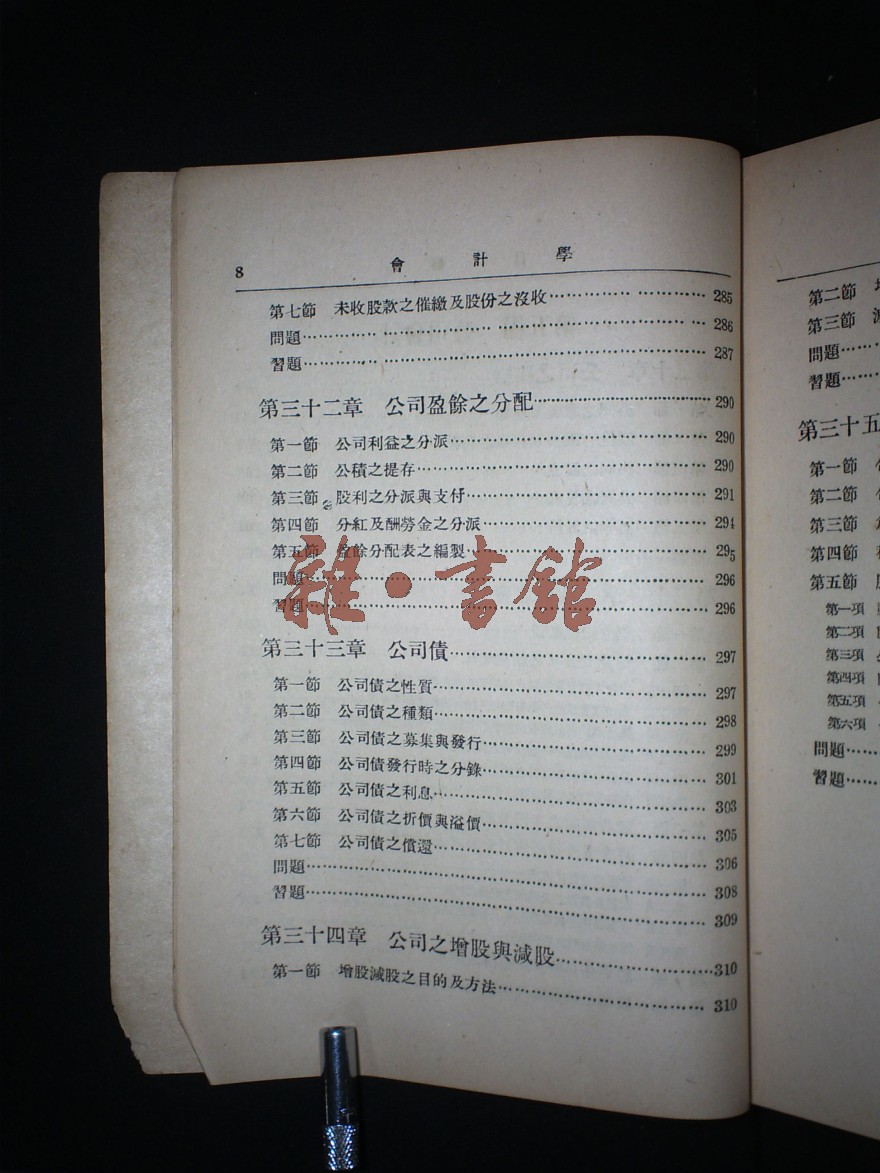 8 會計學
第七節 未收股款之催繳及股份之沒收 285
問題 286
習題 287
第三十二章 公司盈餘之分配 290
第一節 公司利益之分派 290
第二節 公積之提存 290
第三節 股利之分派與支付 291
第四節 分紅及酬勞金之分派 294
第五節 盈餘分配表之編製 295
問題 296
習題 296
第三十三章 公司債 297
第一節 公司債之性質 297
第二節 公司債之種類 298
第三節 公司債之募集與發行 299
第四節 公司債發行時之分錄 301
第五節 公司債之利息 303
第六節 公司債之折價與溢價 305
第七節 公司債之償還 306
問題 308
習題 309
第三十四章 公司之增股與減股 310
第一節 增股減股之目的及方法 310
雜·書館
第二節
第三節
問題
習題
第三十五
第一節
第二節
第三節
第四節
第五節
第一項
第二項
第三項
第四項
第五項
第六項
問題
習題